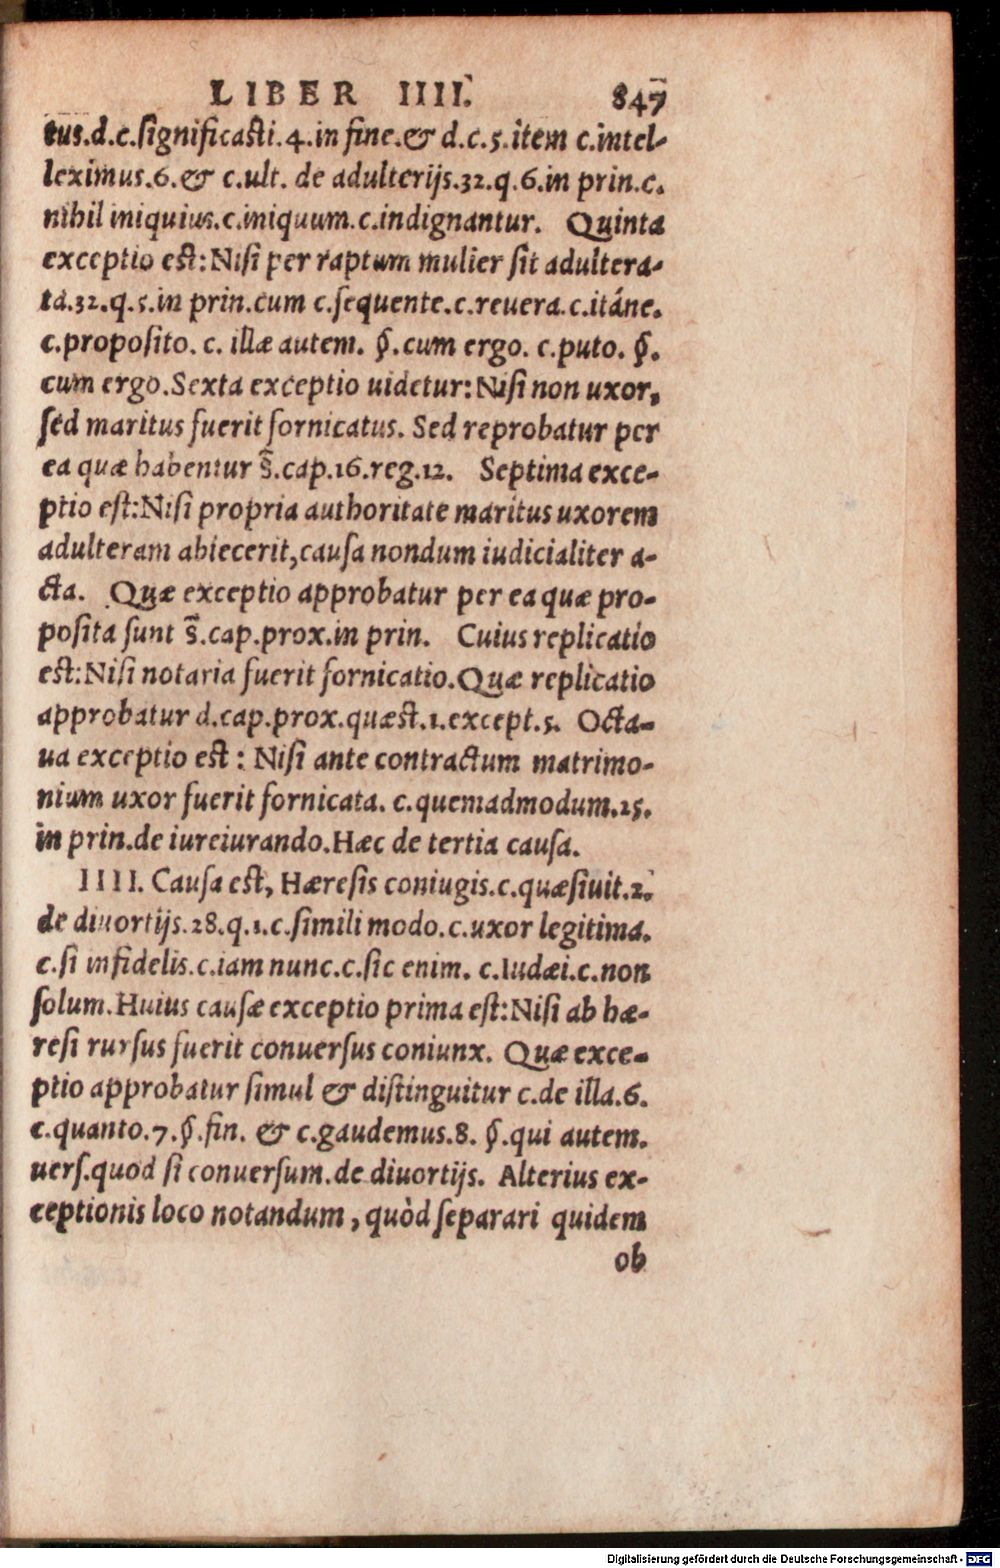 LIBER IIII. 847
tus.d.c.ſignificaſti.4.in fine.& d.c.5.item c.intel-
leximus.6.& c.ult. de adulterijs.32.q.6.in prin.c.
nihil iniquius.c.iniquum.c.indignantur. Quinta
exceptio eſt:Niſi per raptum mulier ſit adultera-
ta.32.q.5.in prin.cum c.ſequente.c.reuera.c.itáne.
c.propoſito. c. illæ autem. §.cum ergo. c.puto. §.
cum ergo.Sexta exceptio uidetur:Niſi non uxor,
ſed maritus fuerit fornicatus. Sed reprobatur per
ea quæ habentur s̃.cap.16.reg.12. Septima exce-
ptio eſt:Niſi propria authoritate maritus uxorem
adulteram abiecerit,cauſa nondum iudicialiter a-
cta. Quæ exceptio approbatur per ea quæ pro-
poſita ſunt s̃.cap.prox.in prin. Cuius replicatio
eſt:Niſi notaria fuerit fornicatio.Quæ replicatio
approbatur d.cap.prox.quæſt.1.except.5. Octa-
ua exceptio eſt : Niſi ante contractum matrimo-
nium uxor fuerit fornicata. c.quemadmodum.25.
in prin.de iureiurando.Hæc de tertia cauſa.
IIII. Cauſa eſt, Hæreſis coniugis.c.quæſiuit.2.
de diuortijs.28.q.1.c.ſimili modo.c.uxor legitima.
c.ſi infidelis.c.iam nunc.c.ſic enim. c.Iudæi.c.non
ſolum.Huius cauſæ exceptio prima eſt:Niſi ab hæ-
reſi rurſus fuerit conuerſus coniunx. Quæ exce-
ptio approbatur ſimul & diſtinguitur c.de illa.6.
c.quanto.7.§.fin. & c.gaudemus.8. §.qui autem.
uerſ.quod ſi conuerſum.de diuortijs. Alterius ex-
ceptionis loco notandum, quòd ſeparari quidem
ob
Digitalisierung gefördert durch die Deutsche Forschungsgemeinschaft - DFG